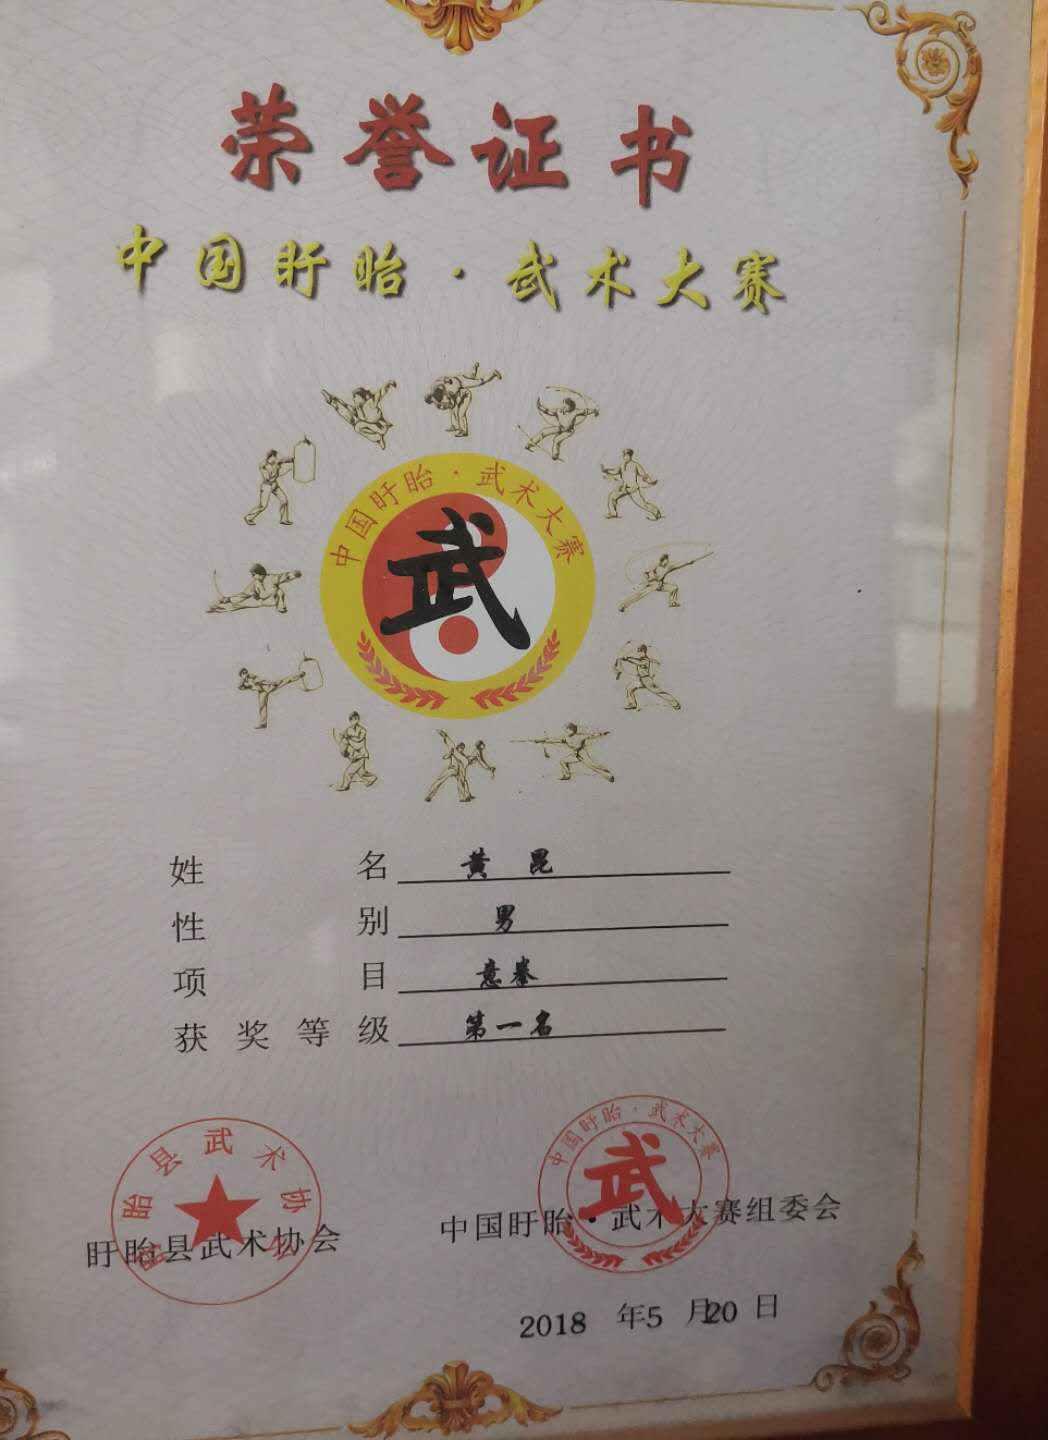 荣誉证书
中国盱眙·武术大赛
中国盱眙·武术大赛
武
姓名 黄昆
性别 男
项目 意拳
获奖等级 第一名
盱眙县武术协会
盱眙县武术协会
中国盱眙·武术大赛
武
中国盱眙·武术大赛组委会
2018 年5 月20 日